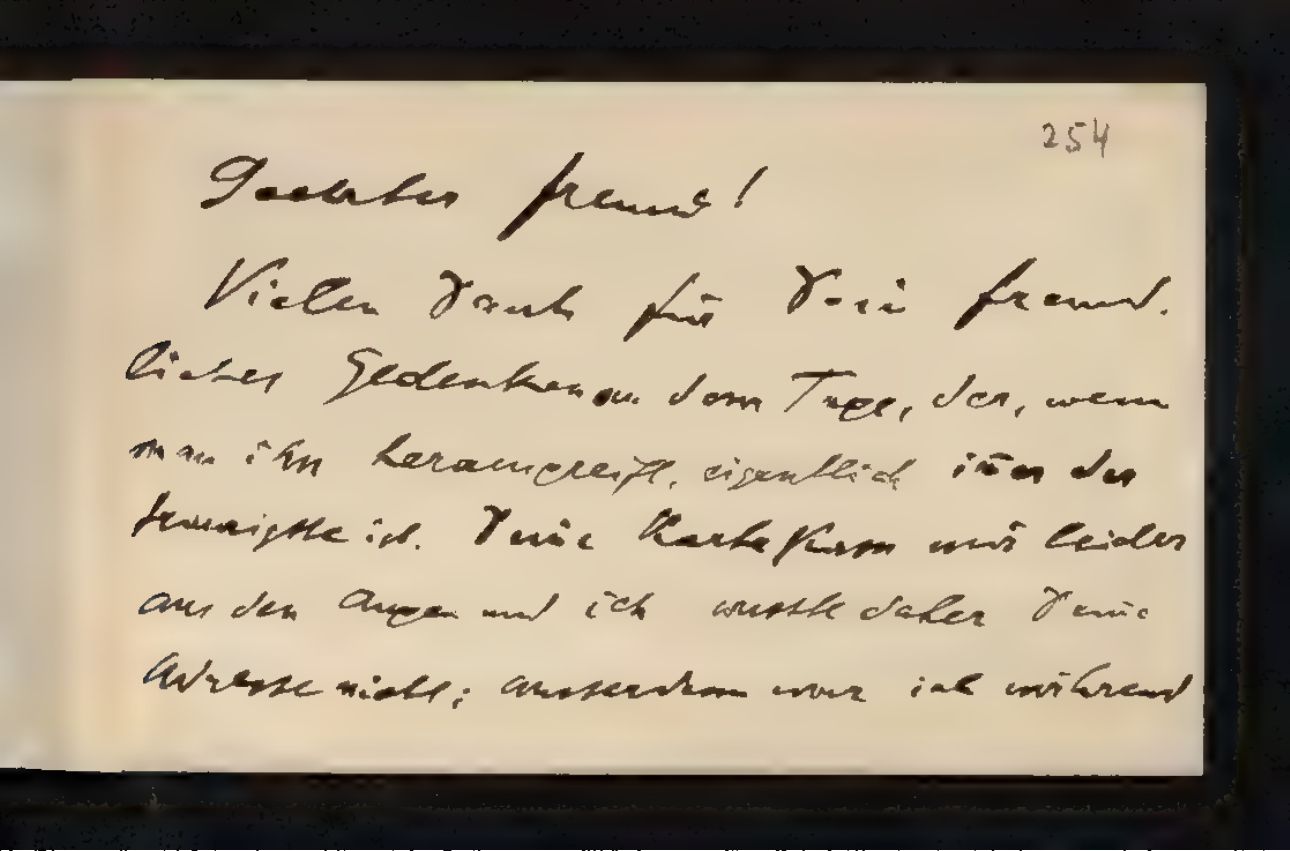 254
Geehrter Freund!
Vielen Dank für Dein freund-
liches Gedenken an dem Tage, der, wenn
man ihn herausgreift, eigentlich im̄er der
traurigste ist. Deine Karte kam mir leider
aus den Augen und ich wusste daher Deine
Adresse nicht; ausserdem war ich während